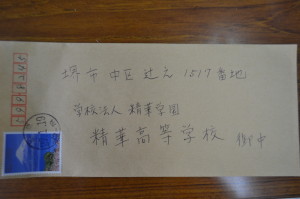 堺市中区辻之1517番地
学校法人 精華学園
精華高等学校 御中